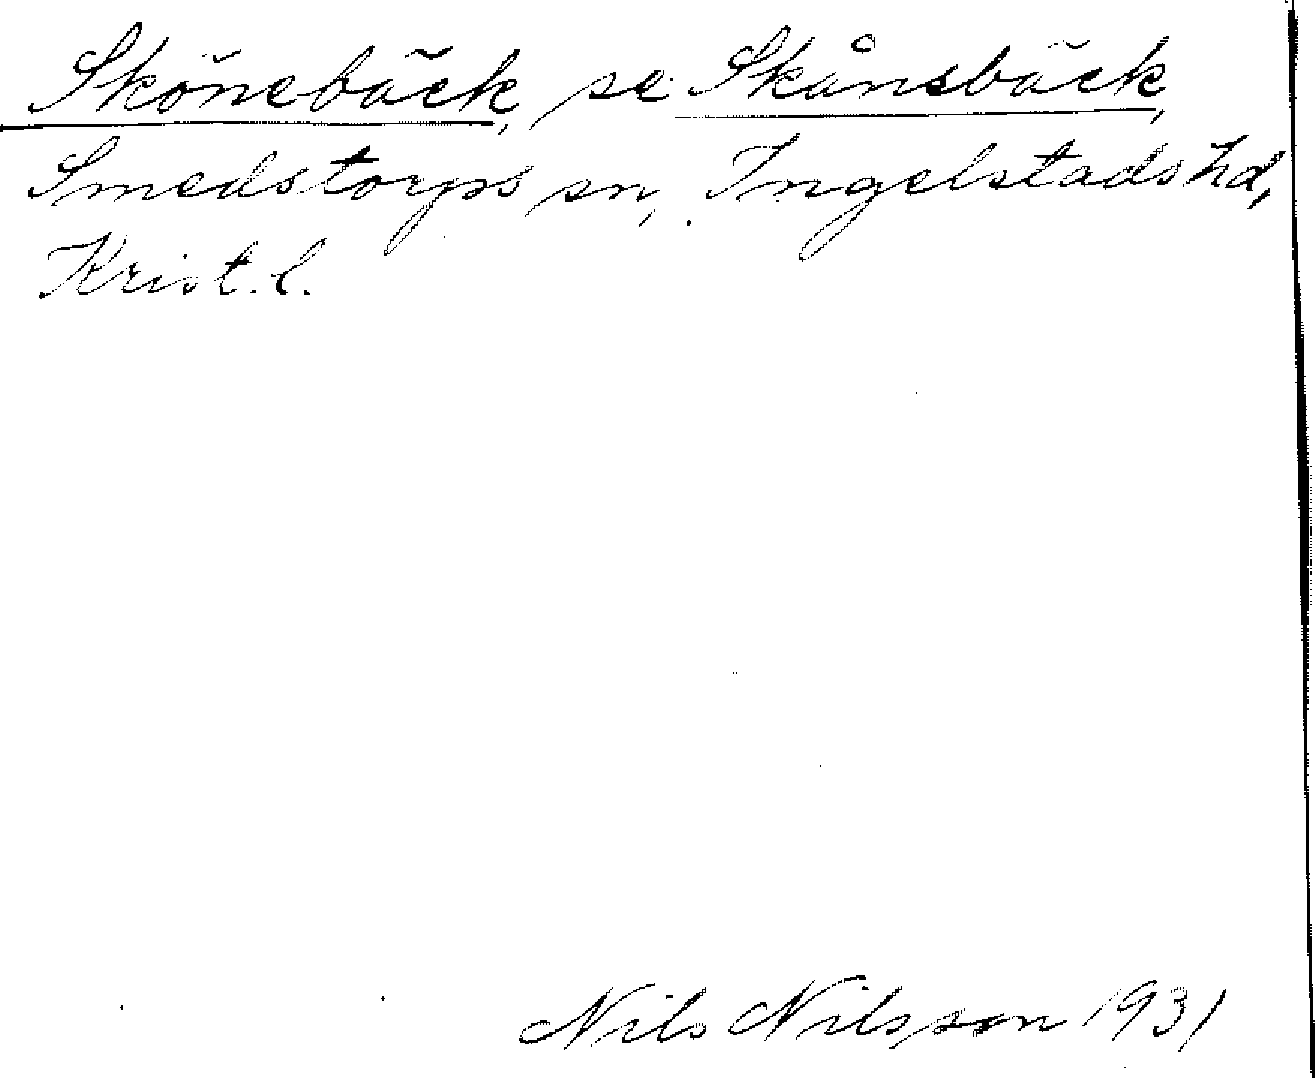 Skönebäck, se Skånsbäck,
Smedstorps sn, Ingelstads hd,
Krist. l.
Nils Nilsson 1931